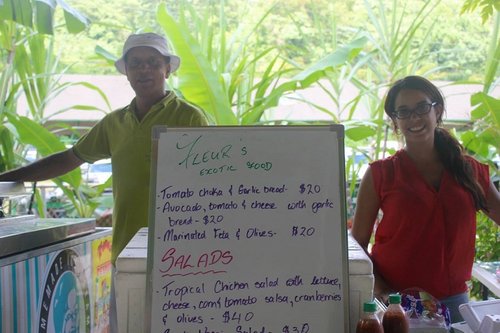 FLEUR'S
EXOTIC FOOD
- Tomato choka & Garlic bread - $20
- Avocado, tomato & cheese with garlic
bread - $20
- Marinated Feta & Olives - $20
SALADS
- Tropical Chicken salad with lettuce,
cheese, corn, tomato salsa, cranberries
& olives - $40
Salad - $30